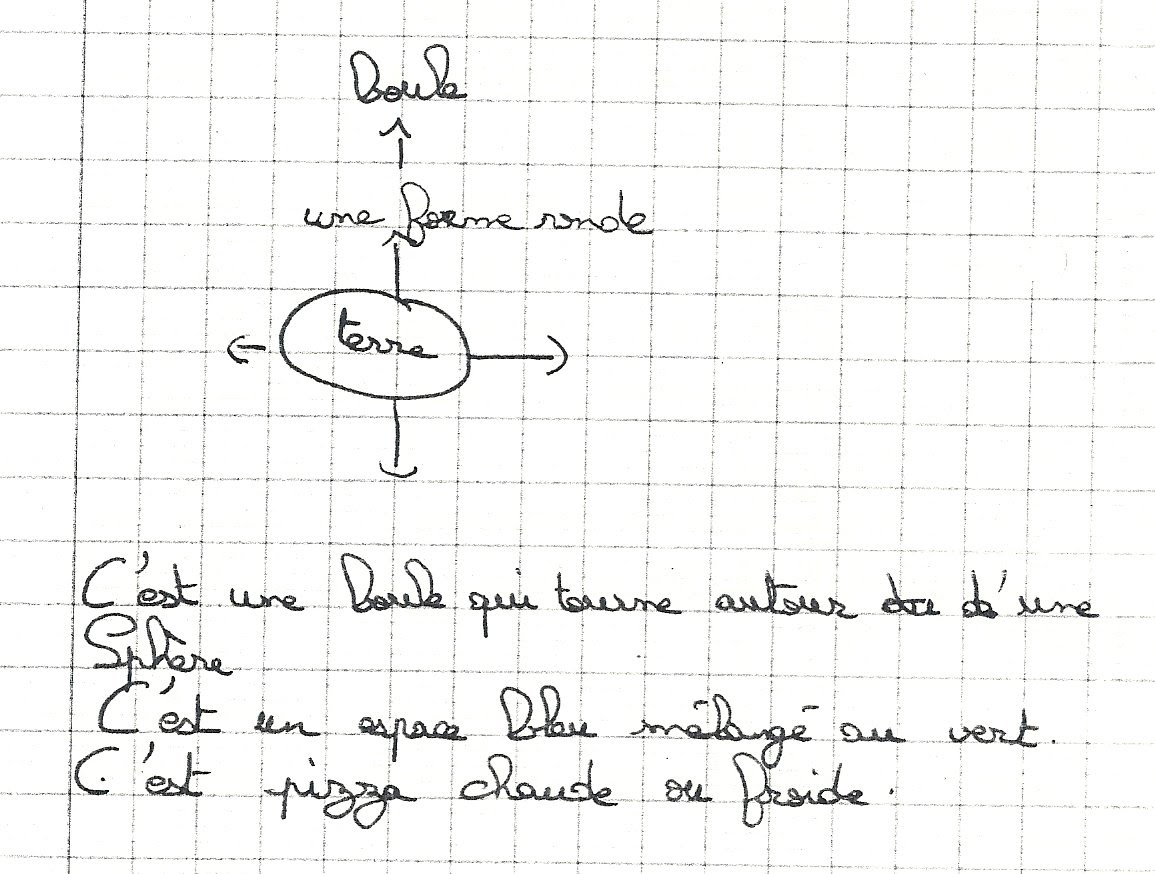 boule
une forme ronde
terre
C'est une boule qui tourne autour du d'une
Sphère
C'est un espace bleu mélangé au vert.
C'est pizza chaude ou froide.